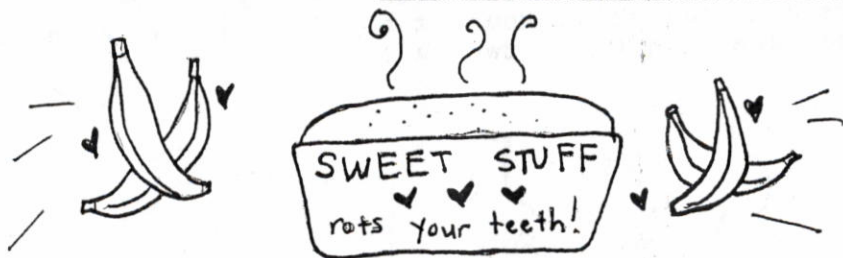 SWEET STUFF
rots your teeth!